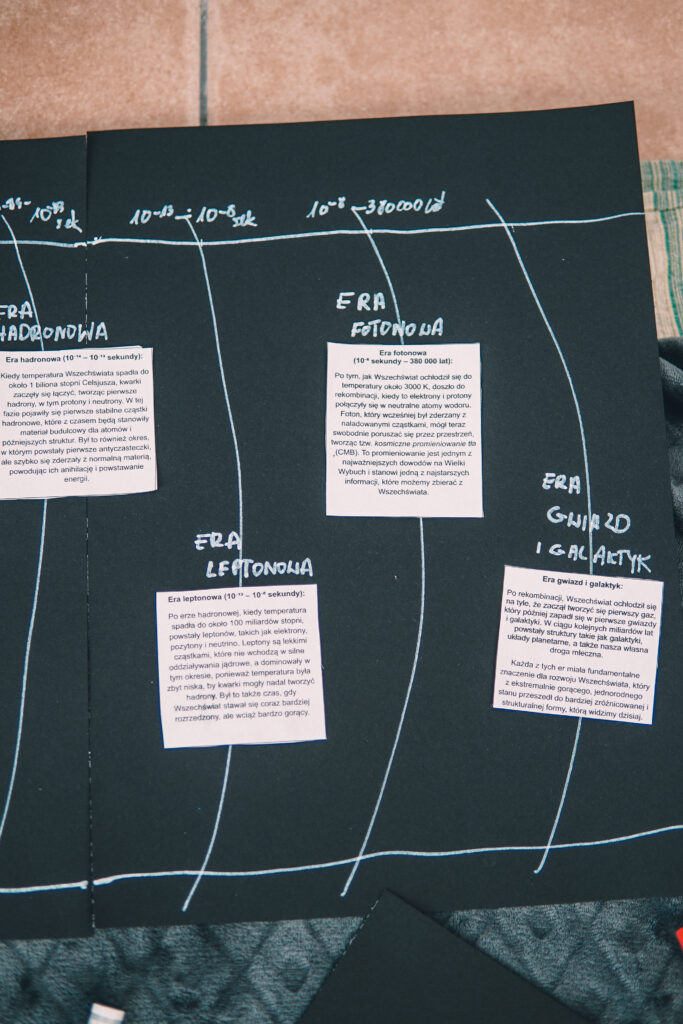 10⁻¹³ sek
10⁻¹³ ÷ 10⁻⁸ sek
10⁻⁸ – 380000 lat
ERA
HADRONOWA
Era hadronowa (10⁻¹⁴ – 10⁻¹³ sekundy):
Kiedy temperatura Wszechświata spadła do
około 1 biliona stopni Celsjusza, kwarki
zaczęły się łączyć, tworząc pierwsze
hadrony, w tym protony i neutrony. W tej
fazie pojawiły się pierwsze stabilne cząstki
hadronowe, które z czasem będą stanowiły
materiał budulcowy dla atomów i
późniejszych struktur. Był to również okres,
w którym powstały pierwsze antycząsteczki,
ale szybko się zderzały z normalną materią,
powodując ich anihilację i powstawanie
energii.
ERA
LEPTONOWA
Era leptonowa (10⁻¹³ – 10⁻⁸ sekundy):
Po erze hadronowej, kiedy temperatura
spadła do około 100 miliardów stopni,
powstały leptonów, takich jak elektrony,
pozytony i neutrino. Leptony są lekkimi
cząstkami, które nie wchodzą w silne
oddziaływania jądrowe, a dominowały w
tym okresie, ponieważ temperatura była
zbyt niska, by kwarki mogły nadal tworzyć
hadrony. Był to także czas, gdy
Wszechświat stawał się coraz bardziej
rozrzedzony, ale wciąż bardzo gorący.
ERA
FOTONOWA
Era fotonowa
(10⁻⁸ sekundy – 380 000 lat):
Po tym, jak Wszechświat ochłodził się do
temperatury około 3000 K, doszło do
rekombinacji, kiedy to elektrony i protony
połączyły się w neutralne atomy wodoru.
Foton, który wcześniej był zderzany z
naładowanymi cząstkami, mógł teraz
swobodnie poruszać się przez przestrzeń,
tworząc tzw. kosmiczne promieniowanie tła
(CMB). To promieniowanie jest jednym z
najważniejszych dowodów na Wielki
Wybuch i stanowi jedną z najstarszych
informacji, które możemy zbierać z
Wszechświata.
ERA
GWIAZD
I GALAKTYK
Era gwiazd i galaktyk:
Po rekombinacji, Wszechświat ochłodził się
na tyle, że zaczął tworzyć się pierwszy gaz,
który później zapadł się w pierwsze gwiazdy
i galaktyki. W ciągu kolejnych miliardów lat
powstały struktury takie jak galaktyki,
układy planetarne, a także nasza własna
droga mleczna.
Każda z tych er miała fundamentalne
znaczenie dla rozwoju Wszechświata, który
z ekstremalnie gorącego, jednorodnego
stanu przeszedł do bardziej zróżnicowanej i
strukturalnej formy, którą widzimy dzisiaj.